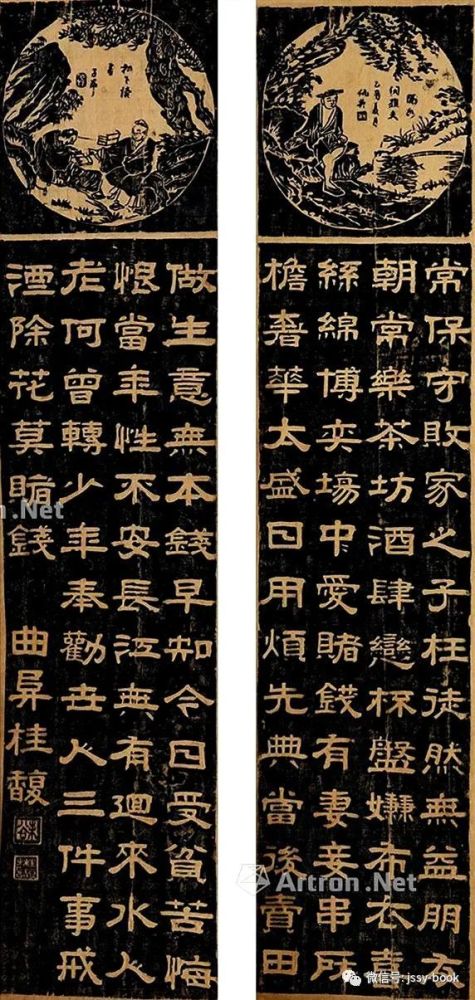 常保守敗家之子枉徒然無益朋友
朝常樂茶坊酒肆戀杯盤嫌布衣喜
絲綿博奕場中愛賭錢有妻妾串麻
檐奢華太盛日用煩先典當後賣田
做生意無本錢早知今日受貧苦悔
恨當年性不安長江無有迴來水人
老何曾轉少年奉勸世人三件事戒
酒除花莫賭錢
曲阜桂馥
Artron.Net
n.Net
微信号: jssy-book